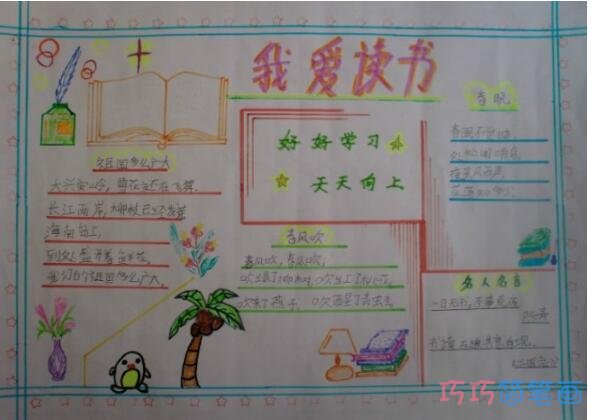 我爱读书
祖国多么广大
大兴安岭,雪花还在飞舞。
长江两岸,柳枝已经发芽
海南岛上,
到处盛开着鲜花。
我们的祖国多么广大。
好好学习
天天向上
春风吹
春风吹,春风吹,
吹绿了柳树,吹红了桃花,
吹来了燕子,吹醒了青蛙。
春晓
春眠不觉晓,
处处闻啼鸟。
夜来风雨声,
花落知多少。
名人名言
一日无书,
书读百遍,其意自现。
《三国志》
巧巧简笔画